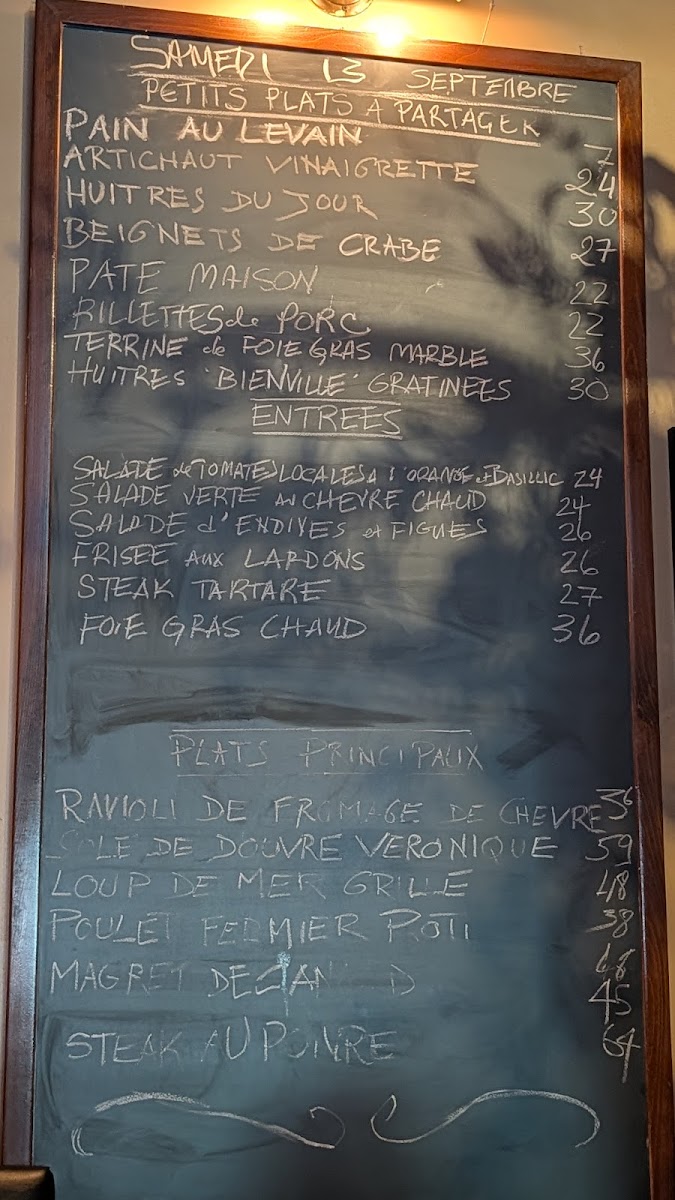 SAMEDI 13 SEPTEMBRE
PETITS PLATS A PARTAGER
PAIN AU LEVAIN 7
ARTICHAUT VINAIGRETTE 24
HUITRES DU JOUR 30
BEIGNETS DE CRABE 27
PATE MAISON 22
RILLETTES de PORC 22
TERRINE de FOIE GRAS MARBLE 36
HUITRES "BIENVILLE" GRATINEES 30
ENTREES
SALADE de TOMATES LOCALES A l'ORANGE et BASILLIC 24
SALADE VERTE au CHEVRE CHAUD 24
SALADE d'ENDIVES et FIGUES 26
FRISEE AUX LARDONS 26
STEAK TARTARE 27
FOIE GRAS CHAUD 36
PLATS PRINCIPAUX
RAVIOLI DE FROMAGE DE CHEVRE 36
SOLE DE DOUVRE VERONIQUE 59
LOUP DE MER GRILLE 48
POULET FERMIER ROTI 38
MAGRET DE 
45
STEAK AU POIVRE 64